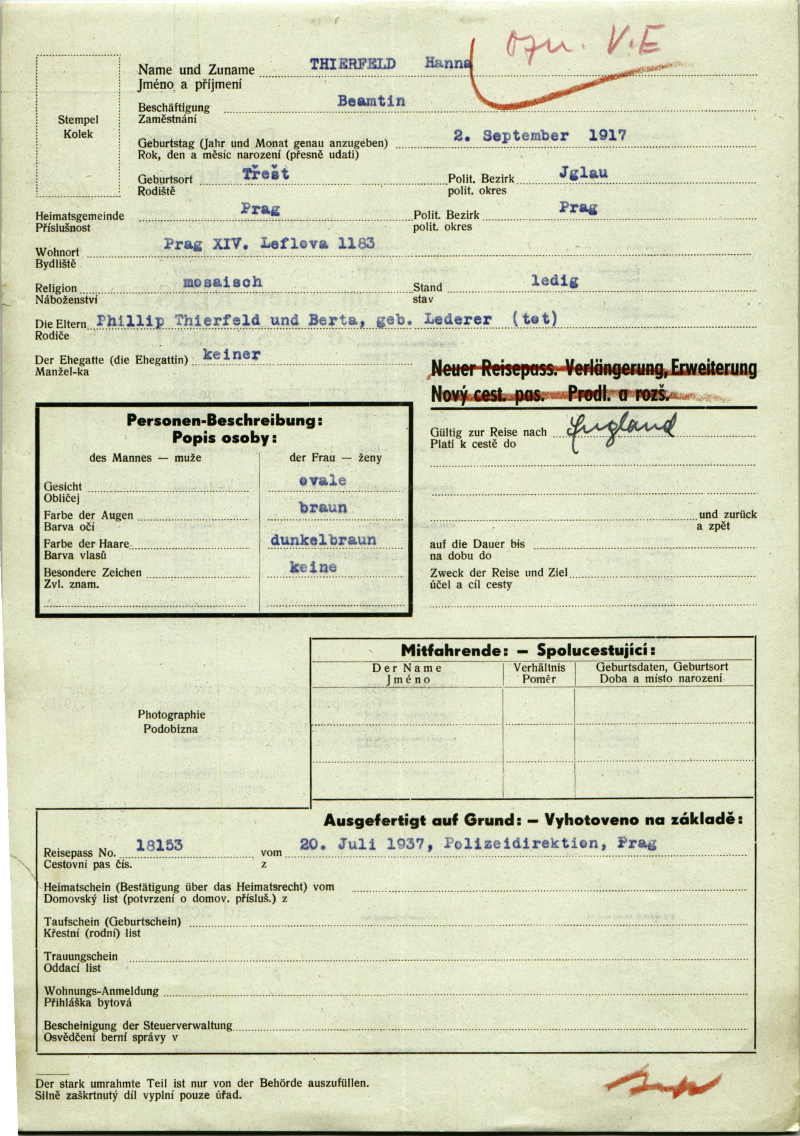 ozn. V.E
Stempel
Kolek
Name und Zuname THIERFELD Hanna
Jméno a příjmení
Beschäftigung Beamtin
Zaměstnání
Geburtstag (Jahr und Monat genau anzugeben) 2. September 1917
Rok, den a měsíc narození (přesně udati)
Geburtsort Třešt Polit. Bezirk Jglau
Rodiště polit. okres
Heimatsgemeinde Prag Polit. Bezirk Prag
Příslušnost polit. okres
Wohnort Prag XIV. Leflova 1183
Bydliště
Religion mosaisch Stand ledig
Náboženství stav
Die Eltern Phillip Thierfeld und Berta, geb. Lederer (tot)
Rodiče
Der Ehegatte (die Ehegattin) keiner
Manžel-ka
Neuer Reisepass. Verlängerung, Erweiterung
Nový cest. pas. Prodl. a rozš.
Personen-Beschreibung:
Popis osoby:
des Mannes — muže der Frau — ženy
Gesicht ovale
Obličej
Farbe der Augen braun
Barva očí
Farbe der Haare dunkelbraun
Barva vlasů
Besondere Zeichen keine
Zvl. znam.
Gültig zur Reise nach England
Platí k cestě do
und zurück
a zpět
auf die Dauer bis
na dobu do
Zweck der Reise und Ziel
účel a cíl cesty
Photographie
Podobizna
Mitfahrende: — Spolucestující:
Der Name Verhältnis Geburtsdaten, Geburtsort
Jméno Poměr Doba a místo narození
Ausgefertigt auf Grund: — Vyhotoveno na základě:
Reisepass No. 18153 vom 20. Juli 1937, Polizeidirektion, Prag
Cestovní pas čís. z
Heimatschein (Bestätigung über das Heimatsrecht) vom
Domovský list (potvrzení o domov. přísluš.) z
Taufschein (Geburtschein)
Křestní (rodní) list
Trauungschein
Oddací list
Wohnungs-Anmeldung
Přihláška bytová
Bescheinigung der Steuerverwaltung
Osvědčení berní správy v
Der stark umrahmte Teil ist nur von der Behörde auszufüllen.
Silně zaškrtnutý díl vyplní pouze úřad.